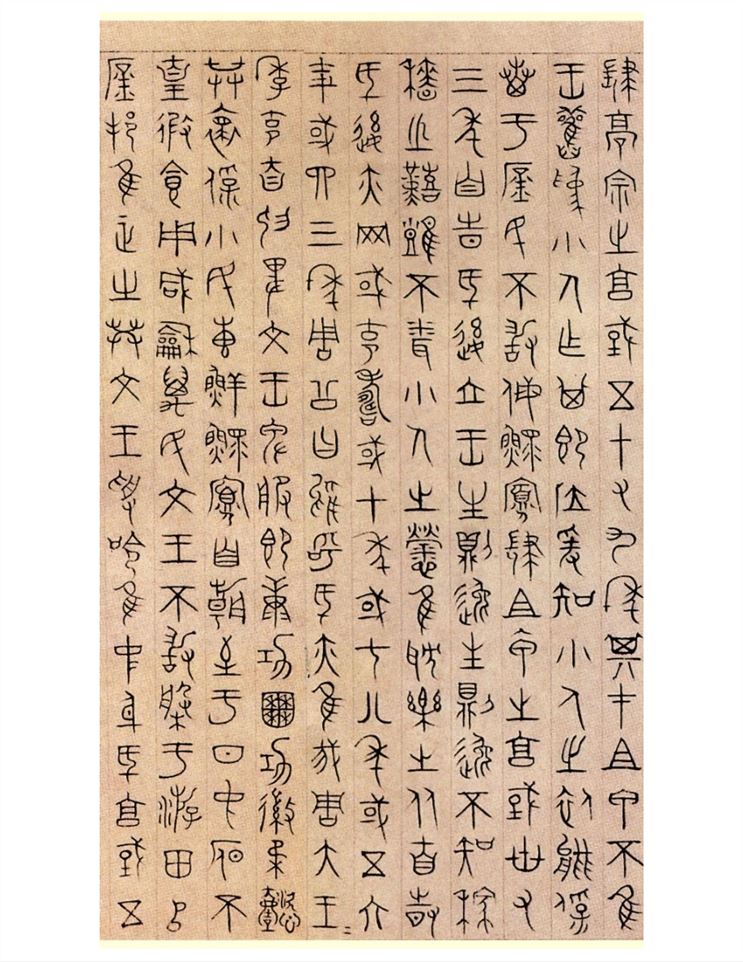 肆高宗之享國五十又九年其才且甲不隹
王舊為小人乍其即位爰知小人之依能保
惠于庶民不敢侮鰥寡肆且甲之享國卅又
三年自時厥後立王生則逸生則逸不知稼
穡之艱難不聞小人之勞隹耽樂之从自時
厥後亦罔或克壽或十年或七八年或五六
年或四三年周公曰嗚呼厥亦隹我周大王=
季克自抑畏文王卑服即康功田功徽柔懿
共懷保小民惠鮮鰥寡自朝至于日中昃不
皇暇食用咸和萬民文王不敢盤于游田以
庶邦隹正之共文王受命隹中身厥享國五